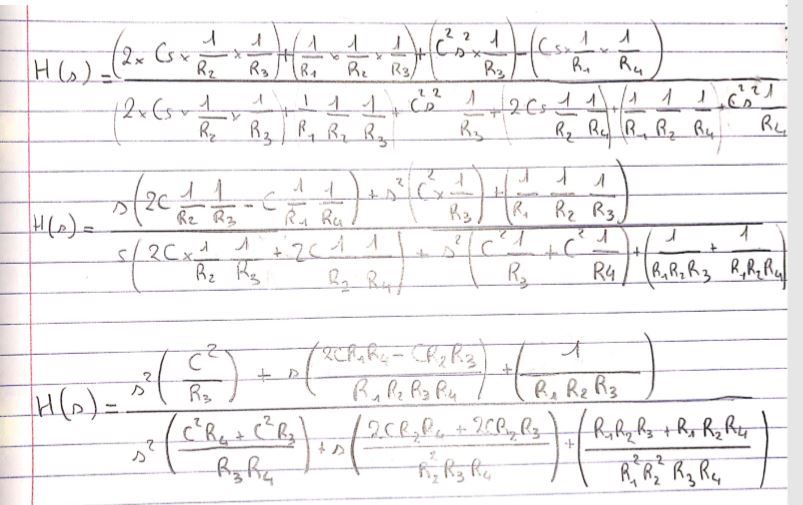 H(s) = \frac{(2 × Cs × \frac{1}{R_2} × \frac{1}{R_3}) + (\frac{1}{R_1} × \frac{1}{R_2} × \frac{1}{R_3}) + (C^2 s^2 × \frac{1}{R_3}) - (Cs × \frac{1}{R_1} × \frac{1}{R_4})}{(2 × Cs × \frac{1}{R_2} × \frac{1}{R_3}) + \frac{1}{R_1} \frac{1}{R_2} \frac{1}{R_3} + C^2 s^2 \frac{1}{R_3} + (2Cs \frac{1}{R_2} \frac{1}{R_4}) + (\frac{1}{R_1} \frac{1}{R_2} \frac{1}{R_4}) + C^2 s^2 \frac{1}{R_4}}
H(s) = \frac{s(2C \frac{1}{R_2} \frac{1}{R_3} - C \frac{1}{R_1} \frac{1}{R_4}) + s^2 (C^2 × \frac{1}{R_3}) + (\frac{1}{R_1} \frac{1}{R_2} \frac{1}{R_3})}{s(2C × \frac{1}{R_2} \frac{1}{R_3} + 2C \frac{1}{R_2} \frac{1}{R_4}) + s^2 (C^2 \frac{1}{R_3} + C^2 \frac{1}{R_4}) + (\frac{1}{R_1 R_2 R_3} + \frac{1}{R_1 R_2 R_4})}
H(s) = \frac{s^2 (\frac{C^2}{R_3}) + s(\frac{2CR_1R_4 - CR_2R_3}{R_1 R_2 R_3 R_4}) + (\frac{1}{R_1 R_2 R_3})}{s^2 (\frac{C^2 R_4 + C^2 R_3}{R_3 R_4}) + s(\frac{2CR_2R_4 + 2CR_2R_3}{R_2^2 R_3 R_4}) + (\frac{R_1 R_2 R_3 + R_1 R_2 R_4}{R_1^2 R_2^2 R_3 R_4})}